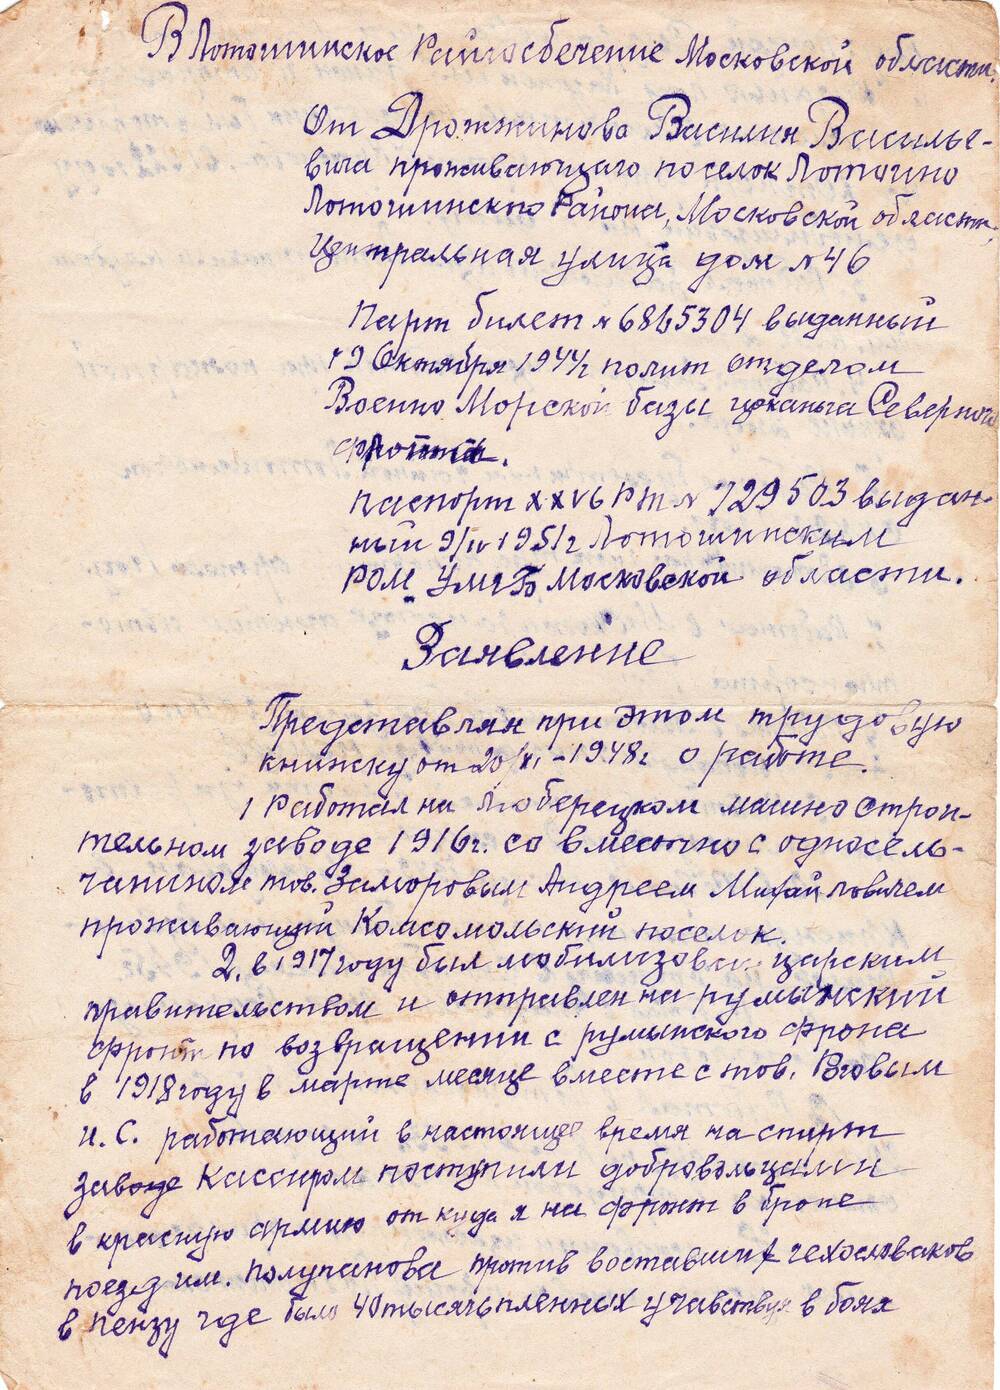 В Лотошинское Райгособечение Московской области.
От Дрожжинова Василия Василье-
вича проживающаго поселок Лотошино
Лотошинского Района, Московской области,
Центральная улица дом №46
Парт билет №6865304 выданный
19 Октября 1944г полит отделом
Военно Морской базы иоканьга Северного
флота.
паспорт XXVI РТ № 729503 выдан-
ный 9/IV 1951г Лотошинским
РОМ УМГБ Московской области.
Заявление
Представляя при этом трудовую
книжку от 20/XI-1948г о работе.
1 Работал на Люберецком машиностроп-
тельном заводе 1916г. совместно с односель-
чанином тов. Заморовым Андреем Михайловичем
проживающий Комсомольский поселок.
2. в 1917 году был мобилизован царским
правительством и отправлен на румынский
фронт по возвращении с румынского фрона
в 1918 году в марте месяце вместе с тов.
И.С. работающий в настоящее время на спирт
заводе Кассиром поступили добровольцами
в красную армию от куда я на фронт в бропе
поезд им. полупанова против воставших чехословаков
в пензу где было 40 тысячь пленных учавствуя в боях